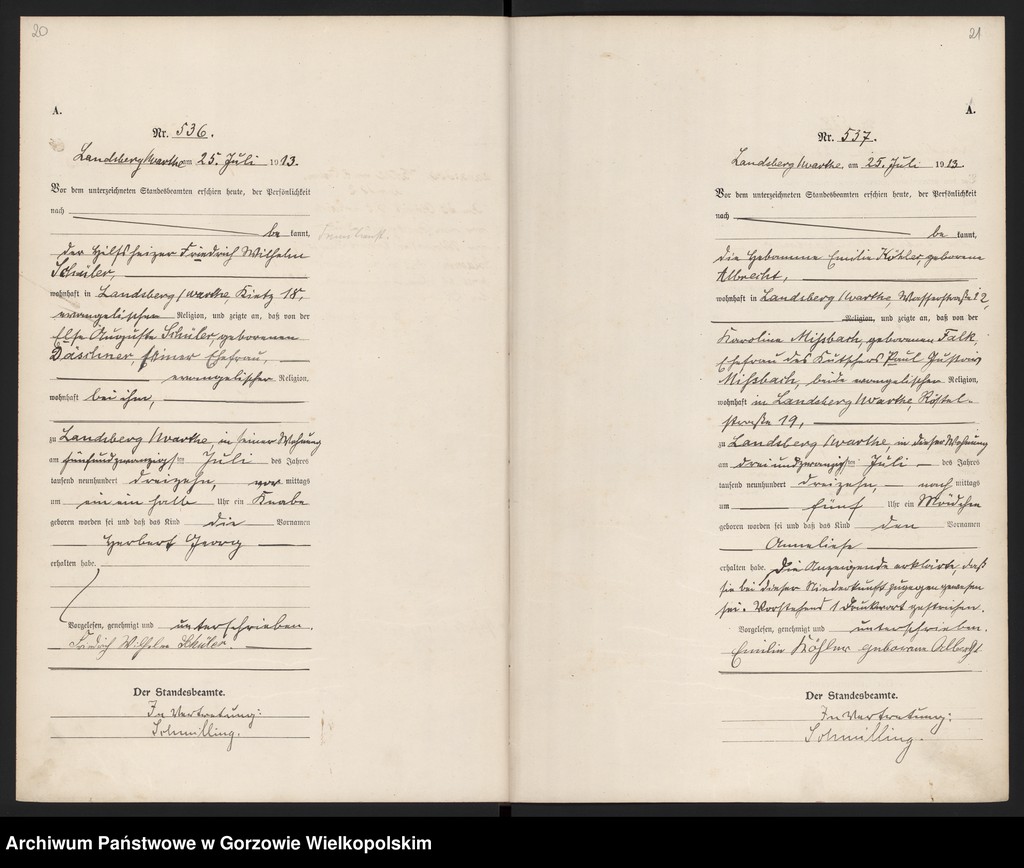 20
A.
Nr. 536.
Landsberg/Warthe am 25. Juli 1913.
Vor dem unterzeichneten Standesbeamten erschien heute, der Persönlichkeit
nach
be kannt,
der Hilfsheizer Friedrich Wilhelm
Schüler,
wohnhaft in Landsberg/Warthe, Kietz 18,
evangelischen Religion, und zeigte an, daß von der
Else Auguste Schüler, geborenen
Däschner, seiner Ehefrau,
evangelischer Religion,
wohnhaft bei ihm,
zu Landsberg/Warthe, in seiner Wohnung
am fünfundzwanzigsten Juli des Jahres
tausend neunhundert dreizehn, vor mittags
um ein ein halb Uhr ein Knabe
geboren worden sei und daß das Kind die Vornamen
Herbert Georg
erhalten habe.
Vorgelesen, genehmigt und unterschrieben.
Friedrich Wilhelm Schüler.
Der Standesbeamte.
In Vertretung:
Schmilling.
21
A.
Nr. 537.
Landsberg/Warthe, am 25. Juli 1913
Vor dem unterzeichneten Standesbeamten erschien heute, der Persönlichkeit
nach
be kannt,
die Hebamme Emilie Köhler, geborene
Albrecht,
wohnhaft in Landsberg/Warthe, Wasserstraße 12,
Religion, und zeigte an, daß von der
Karoline Mißbach, geborenen Falk,
Ehefrau des Kutschers Paul Gustav
Mißbach, beide evangelischen Religion,
wohnhaft in Landsberg/Warthe, Röstel-
straße 19,
zu Landsberg/Warthe, in dieser Wohnung
am dreiundzwanzigsten Juli des Jahres
tausend neunhundert dreizehn, nach mittags
um fünf Uhr ein Mädchen
geboren worden sei und daß das Kind den Vornamen
Anneliese
erhalten habe. Die Anzeigende erklärte, daß
sie bei dieser Niederkunft zugegen gewesen
sei. Vorstehend 1 Druckwort gestrichen.
Vorgelesen, genehmigt und unterschrieben.
Emilie Köhler geborene Albrecht
Der Standesbeamte.
In Vertretung:
Schmilling.
Archiwum Państwowe w Gorzowie Wielkopolskim